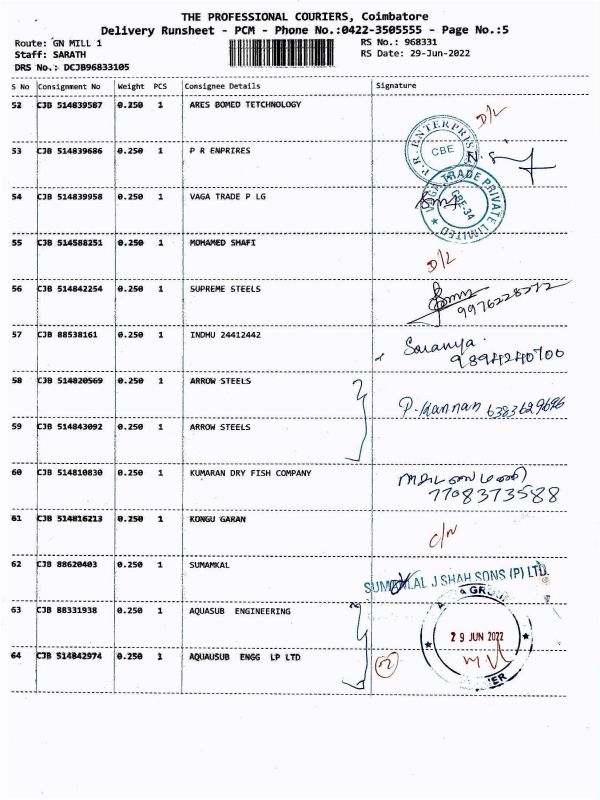 THE PROFESSIONAL COURIERS, Coimbatore
Delivery Runsheet - PCM - Phone No.:0422-3505555 - Page No.:5
Route: GN MILL 1
RS No.: 968331
Staff: SARATH
RS Date: 29-Jun-2022
DRS No.: DCJB96833105
S No Consignment No Weight PCS Consignee Details Signature
52 CJB 514839587 0.250 1 ARES BOMED TETCHNOLOGY D/L
53 CJB 514839686 0.250 1 P R ENPRIRES P.R. ENTERPRIS CBE
54 CJB 514839958 0.250 1 VAGA TRADE P LG VAGA TRADE PRIVATE LIMITED CBE-34
55 CJB 514588251 0.250 1 MOHAMED SHAFI D/L
56 CJB 514842254 0.250 1 SUPREME STEELS 9976228272
57 CJB 88538161 0.250 1 INDHU 24412442 Saranya.
9894240700
58 CJB 514820569 0.250 1 ARROW STEELS P. Kannan 6383629696
59 CJB 514843092 0.250 1 ARROW STEELS
60 CJB 514810830 0.250 1 KUMARAN DRY FISH COMPANY
7708373588
61 CJB 514816213 0.250 1 KONGU GARAN C/N
62 CJB 88620403 0.250 1 SUMAMKAL SUMANLAL J SHAH SONS (P) LTD.
63 CJB 88331938 0.250 1 AQUASUB ENGINEERING 29 JUN 2022
64 CJB 514842974 0.250 1 AQUAUSUB ENGG LP LTD